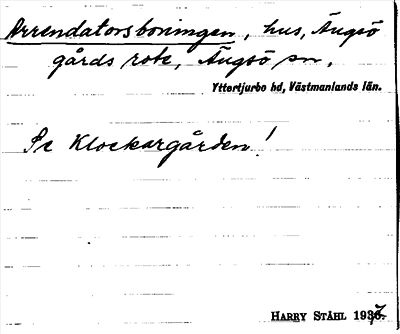 Arrendatorsboningen, hus, Ängsö
gårds rote, Ängsö sn,
Yttertjurbo hd, Västmanlands län.
Se Klockargården!
HARRY STÅHL 1937.